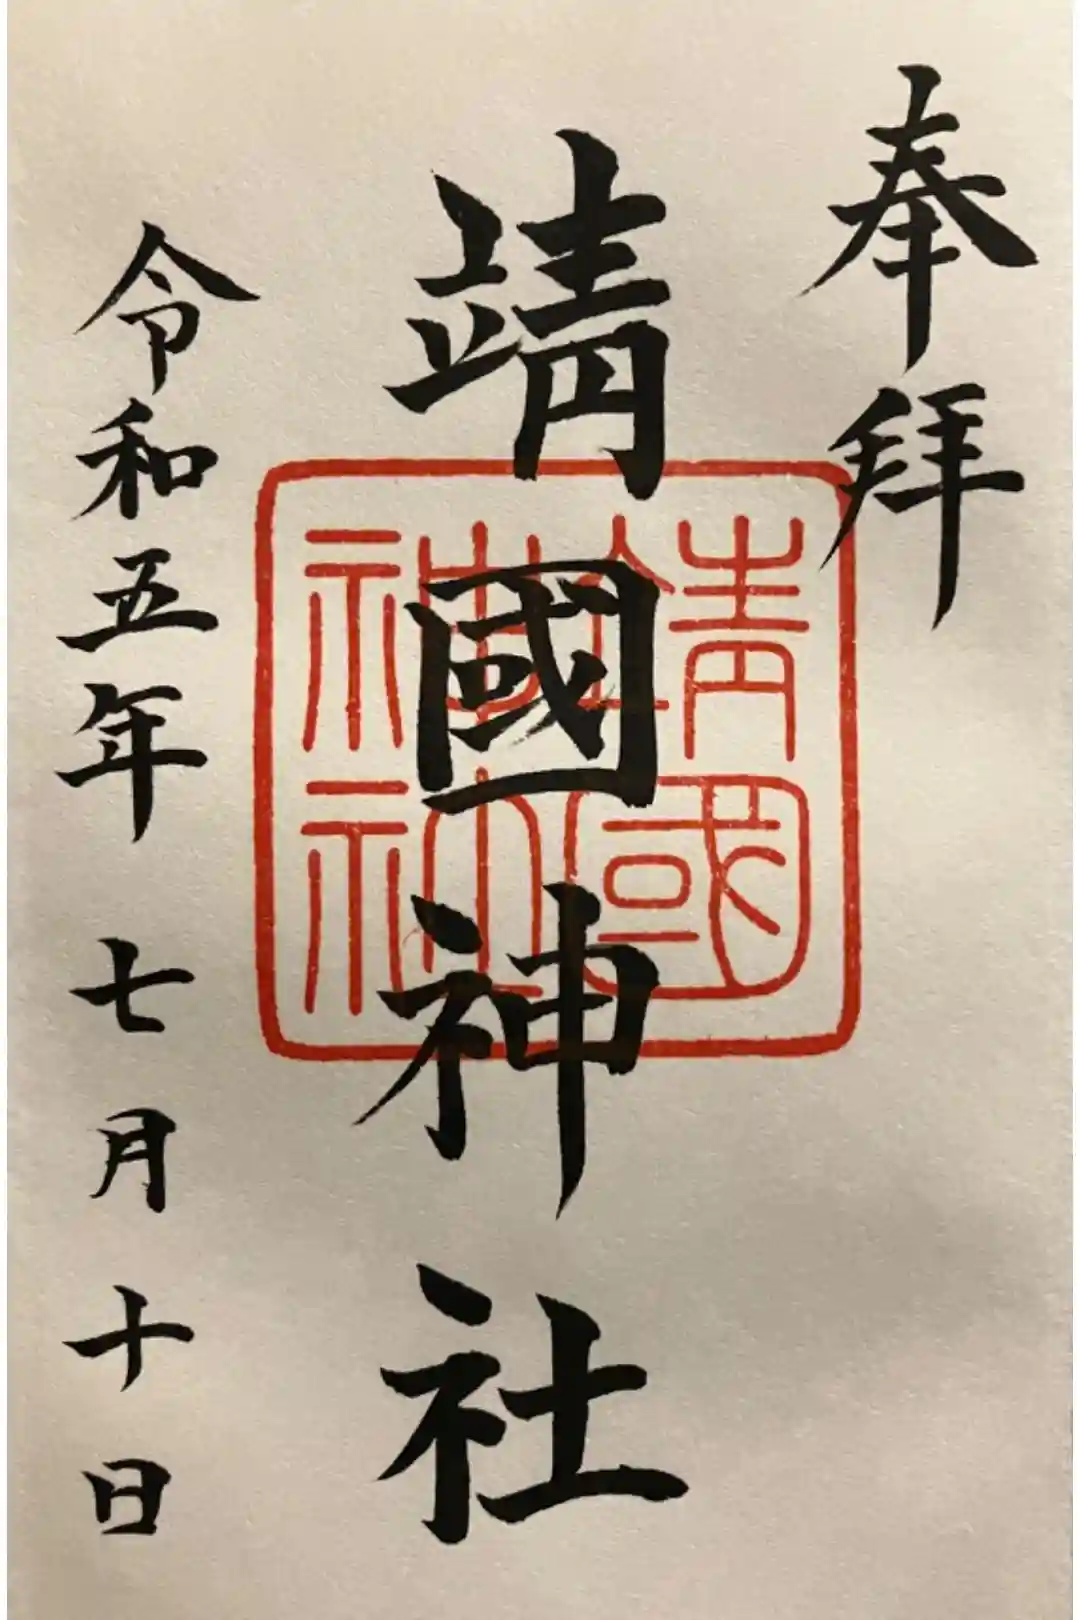 奉拝
靖國神社
靖國
神社
令和五年七月十日